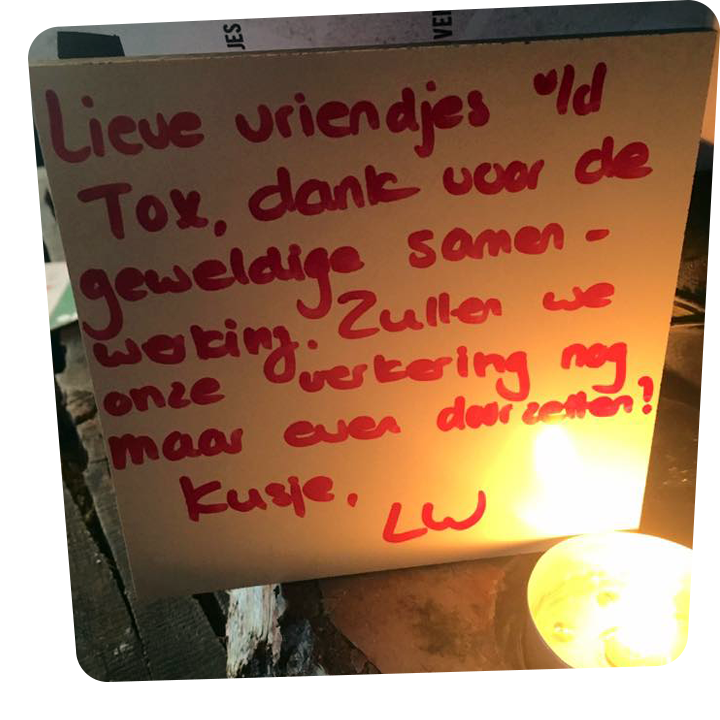 JES
VEI
Lieve vriendjes v/d
Tox, dank voor de
geweldige samen-
werking. Zullen we
onze verkering nog
maar even doorzetten?
Kusje,
LW